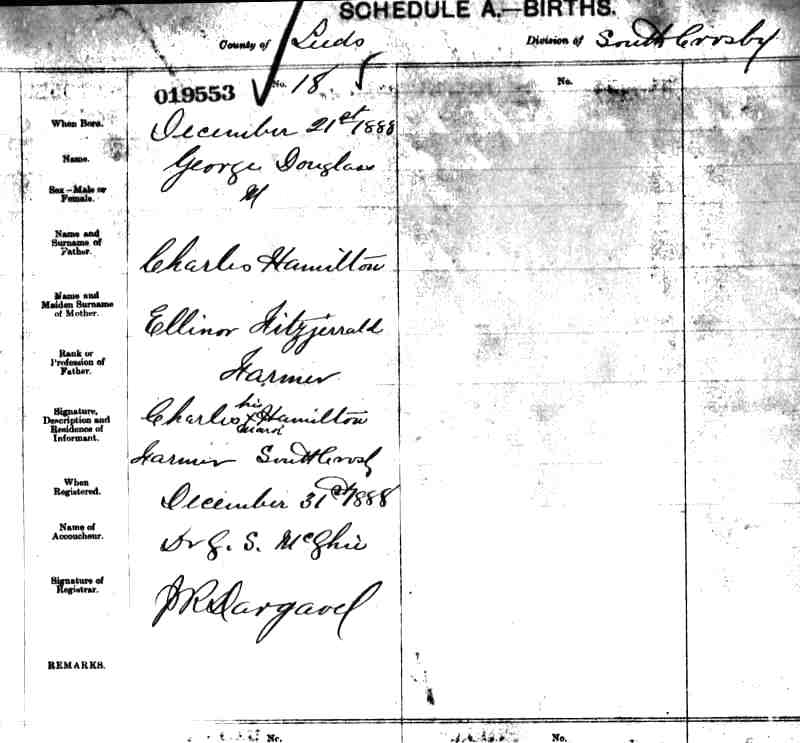 SCHEDULE A.—BIRTHS.
County of Leeds Division of South Crosby
019553 No. 18 No.
When Born. December 21st 1888
Name. George Douglass
Sex—Male or Female. M
Name and Surname of Father. Charles Hamilton
Name and Maiden Surname of Mother. Ellinor Fitzjerrald
Rank or Profession of Father. Farmer
his
Signature, Description and Residence of Informant. Charles X Hamilton
mark
Farmer South Crosby
When Registered. December 31st 1888
Name of Accoucheur. Dr G. S. McGhie
Signature of Registrar. JR Dargavel
REMARKS.
No. No.